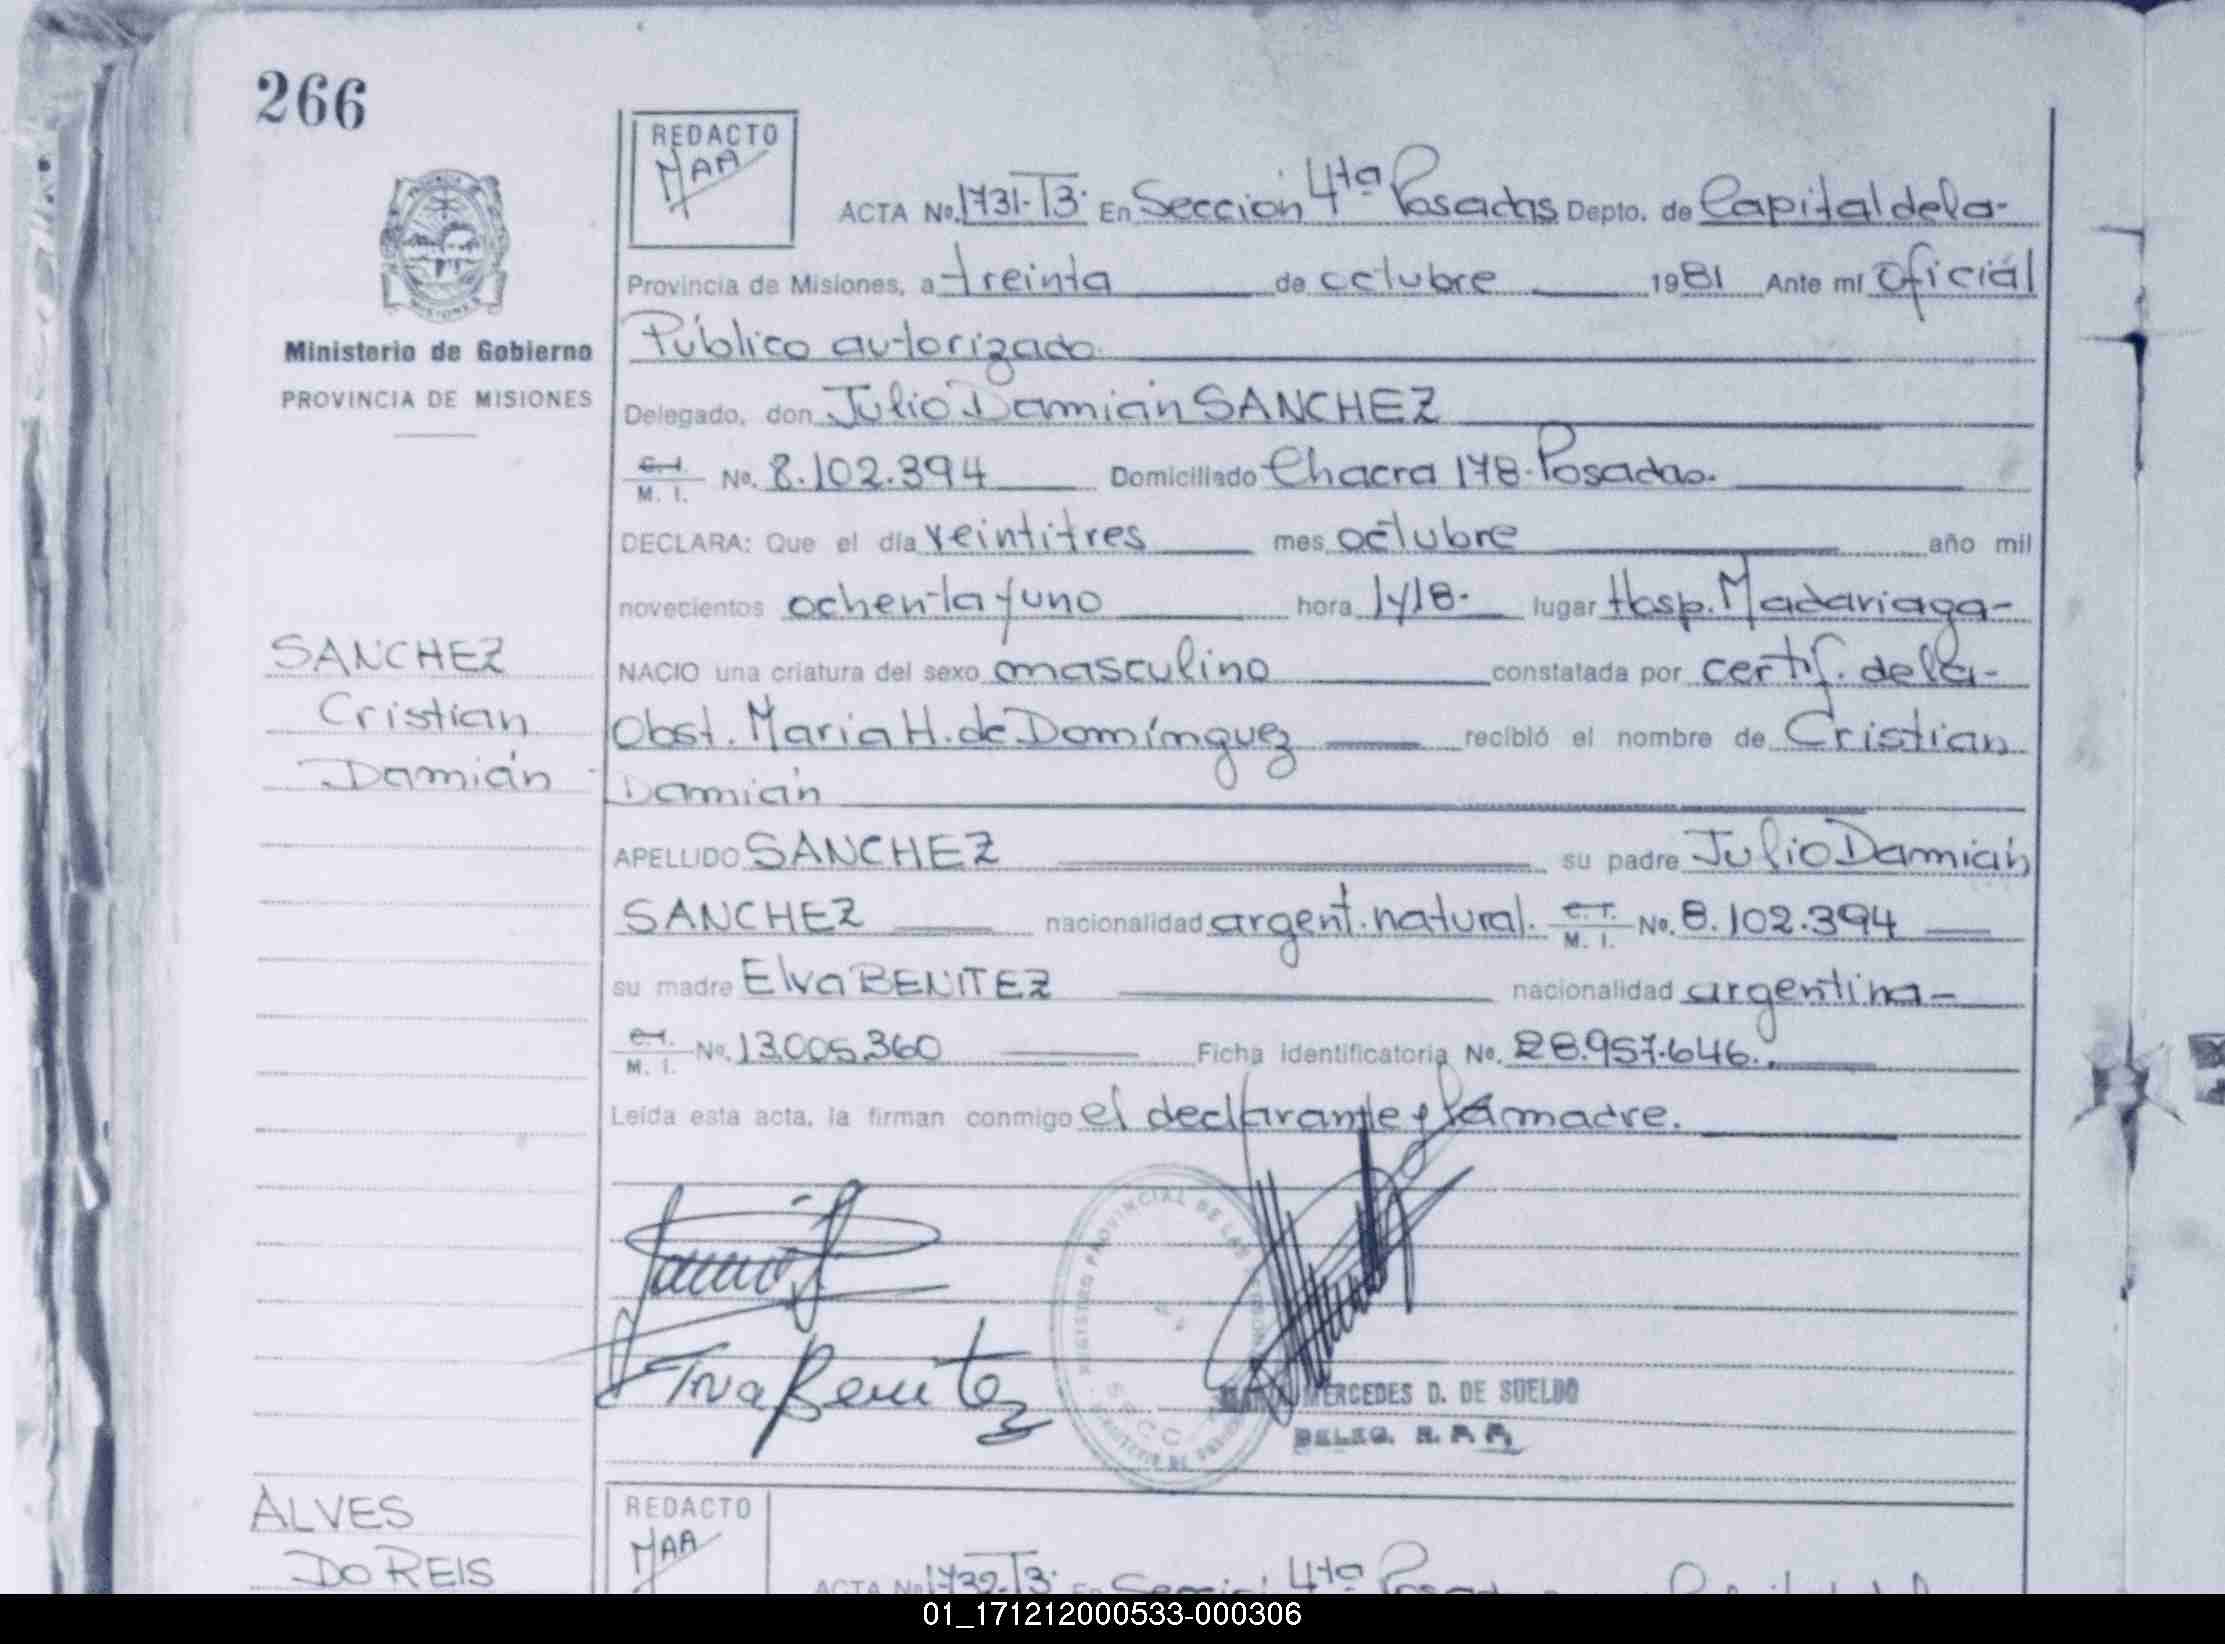 266
REDACTO
MAA
ACTA No. 1731-T3. En Sección 4ta Posadas Depto. de Capital dela-
Provincia de Misiones, a treinta de octubre 1981 Ante mí Oficial
Ministerio de Gobierno
Público autorizado.
PROVINCIA DE MISIONES
Delegado, don Julio Damián SANCHEZ
C.I.
M. I. No. 8.102.394 Domiciliado Chacra 178-Posadas.
DECLARA: Que el día veintitres mes octubre año mil
novecientos ochenta y uno hora 1y18. lugar Hosp. Madariaga-
SANCHEZ
NACIO una criatura del sexo masculino constatada por certif. dela-
Cristian
Obst. María H. de Domínguez recibió el nombre de Cristian
Damián
Damián
APELLIDO SANCHEZ su padre Julio Damián
SANCHEZ nacionalidad argent. natural. M. I. No. 8.102.394
su madre Elva BENITEZ nacionalidad argentina-
M. I. No. 13.005.360 Ficha identificatoria No. 28.957.646.
Leída esta acta, la firman conmigo el declarante y la madre.
REGISTRO PROVINCIAL DE LAS
Benitez
MERCEDES D. DE SUELDO
DELEG. R. P. P.
ALVES
DO REIS
REDACTO
MAA
ACTA No. 1732-T3. En Secci 4ta Posadas
01_171212000533-000306